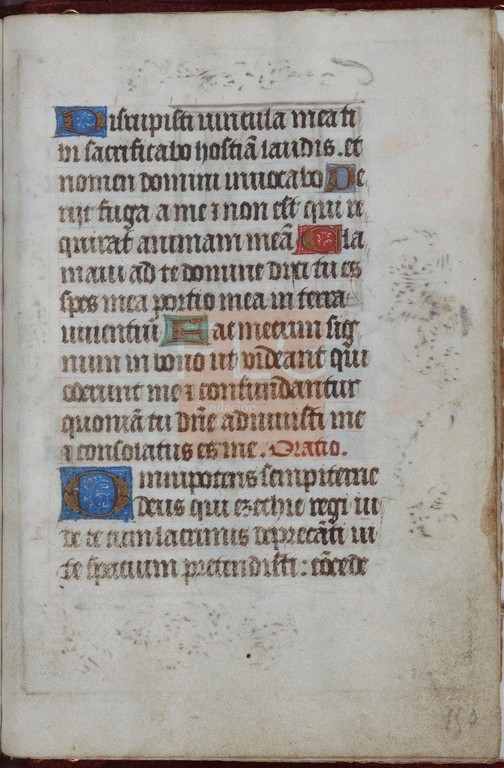 Disrupisti vincula mea ti
bi sacrificabo hostiā laudis. et
nomen domini invocabo Pe
rijt fuga a me ⁊ non est qui re
quirat animam meā Cla
mavi ad te domine dixi tu es
spes mea portio mea in terra
viventiū Fac mecum sig
num in bono ut videant qui
oderunt me ⁊ confundantur
quoniā tu dn̄e adiuvisti me
⁊ consolatus es me. Oratio.
Omnipotens sempiterne
deus qui ezechie regi iu
de te cum lacrimis deprecāti vi
te spacium pretendisti: cōcede
150